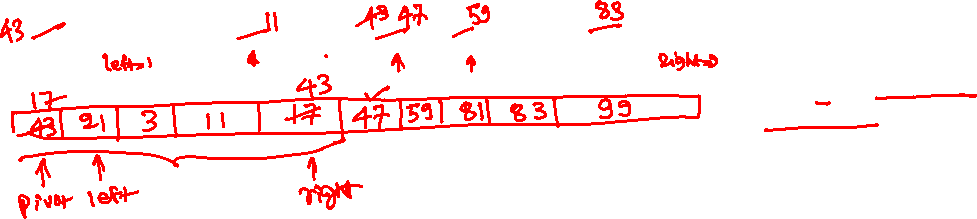 43 11 43 47 59 83
left=1 right=0
17 43
43 21 3 11 17 47 59 81 83 99
pivot left right